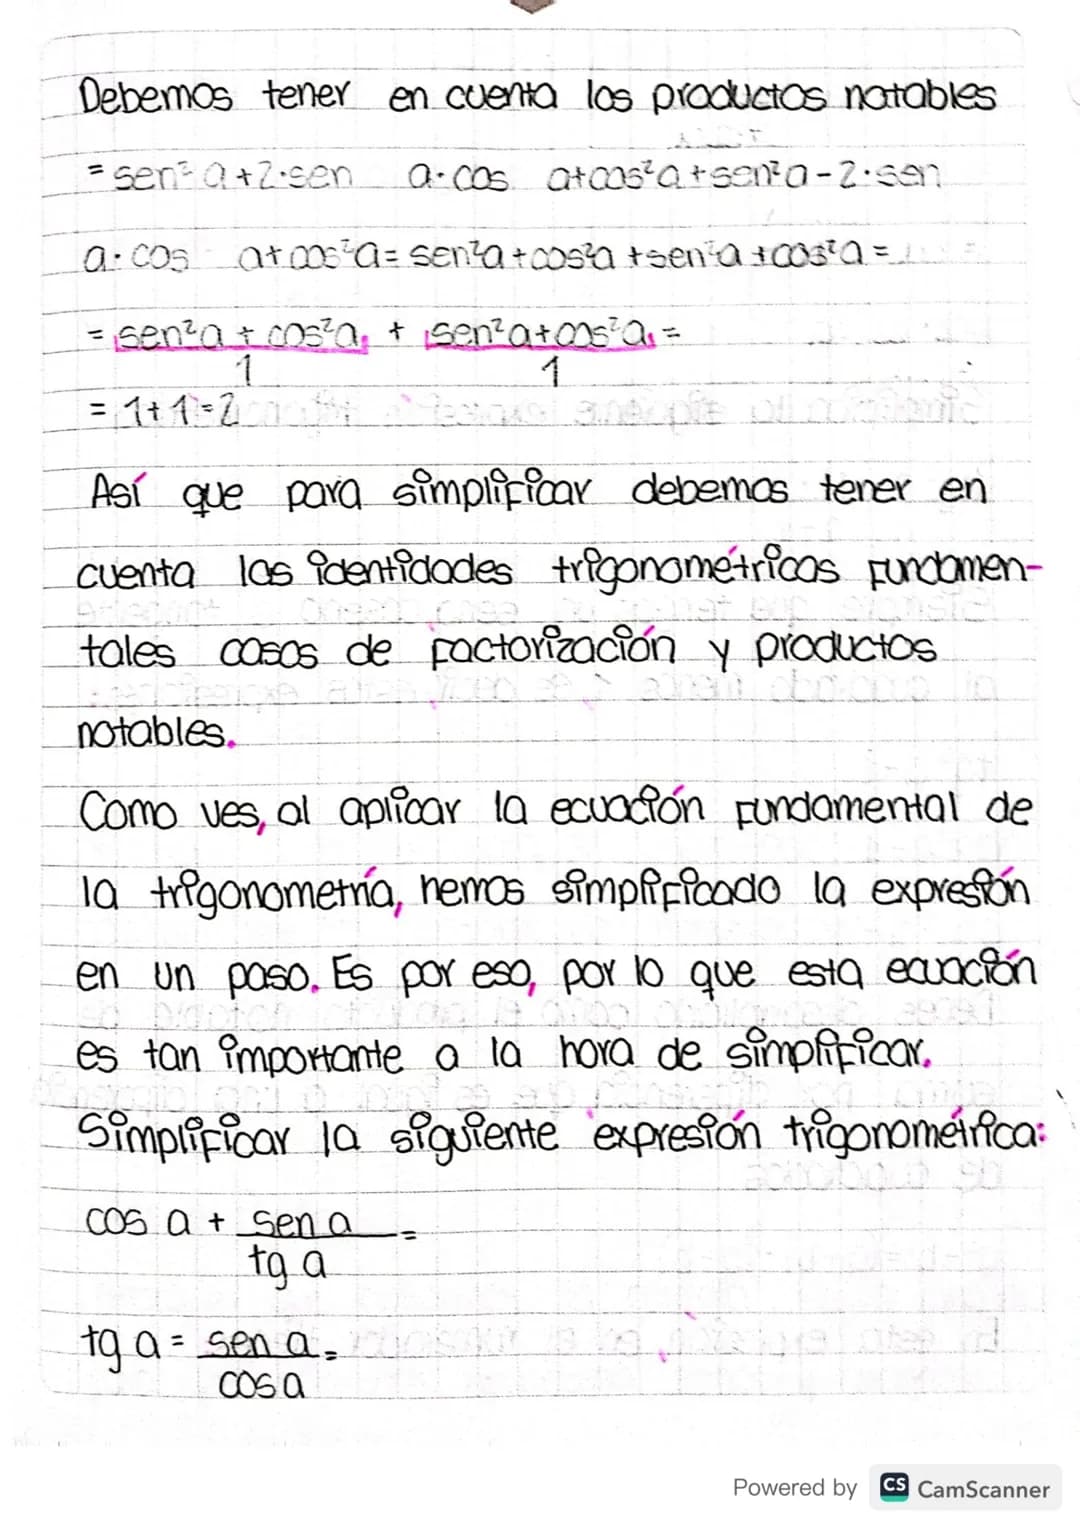 Debemos tener en cuenta los productos notables
= sen² a + 2·sen a·cos a + cos²a + sen²a - 2·sen
a·cos a + cos²a = sen²a + cos²a + sen²a + cos²a =
= sen²a + cos²a + sen²a + cos²a =
1 1
= 1+1=2
Así que para simplificar debemos tener en
cuenta las identidades trigonométricas fundamen-
tales casos de factorización y productos
notables.
Como ves, al aplicar la ecuación fundamental de
la trigonometría, hemos simplificado la expresión
en un paso. Es por eso, por lo que esta ecuación
es tan importante a la hora de simplificar.
Simplificar la siguiente expresión trigonométrica:
cos a + sen a =
tg a
tg a = sen a =
cos a
Powered by CS CamScanner